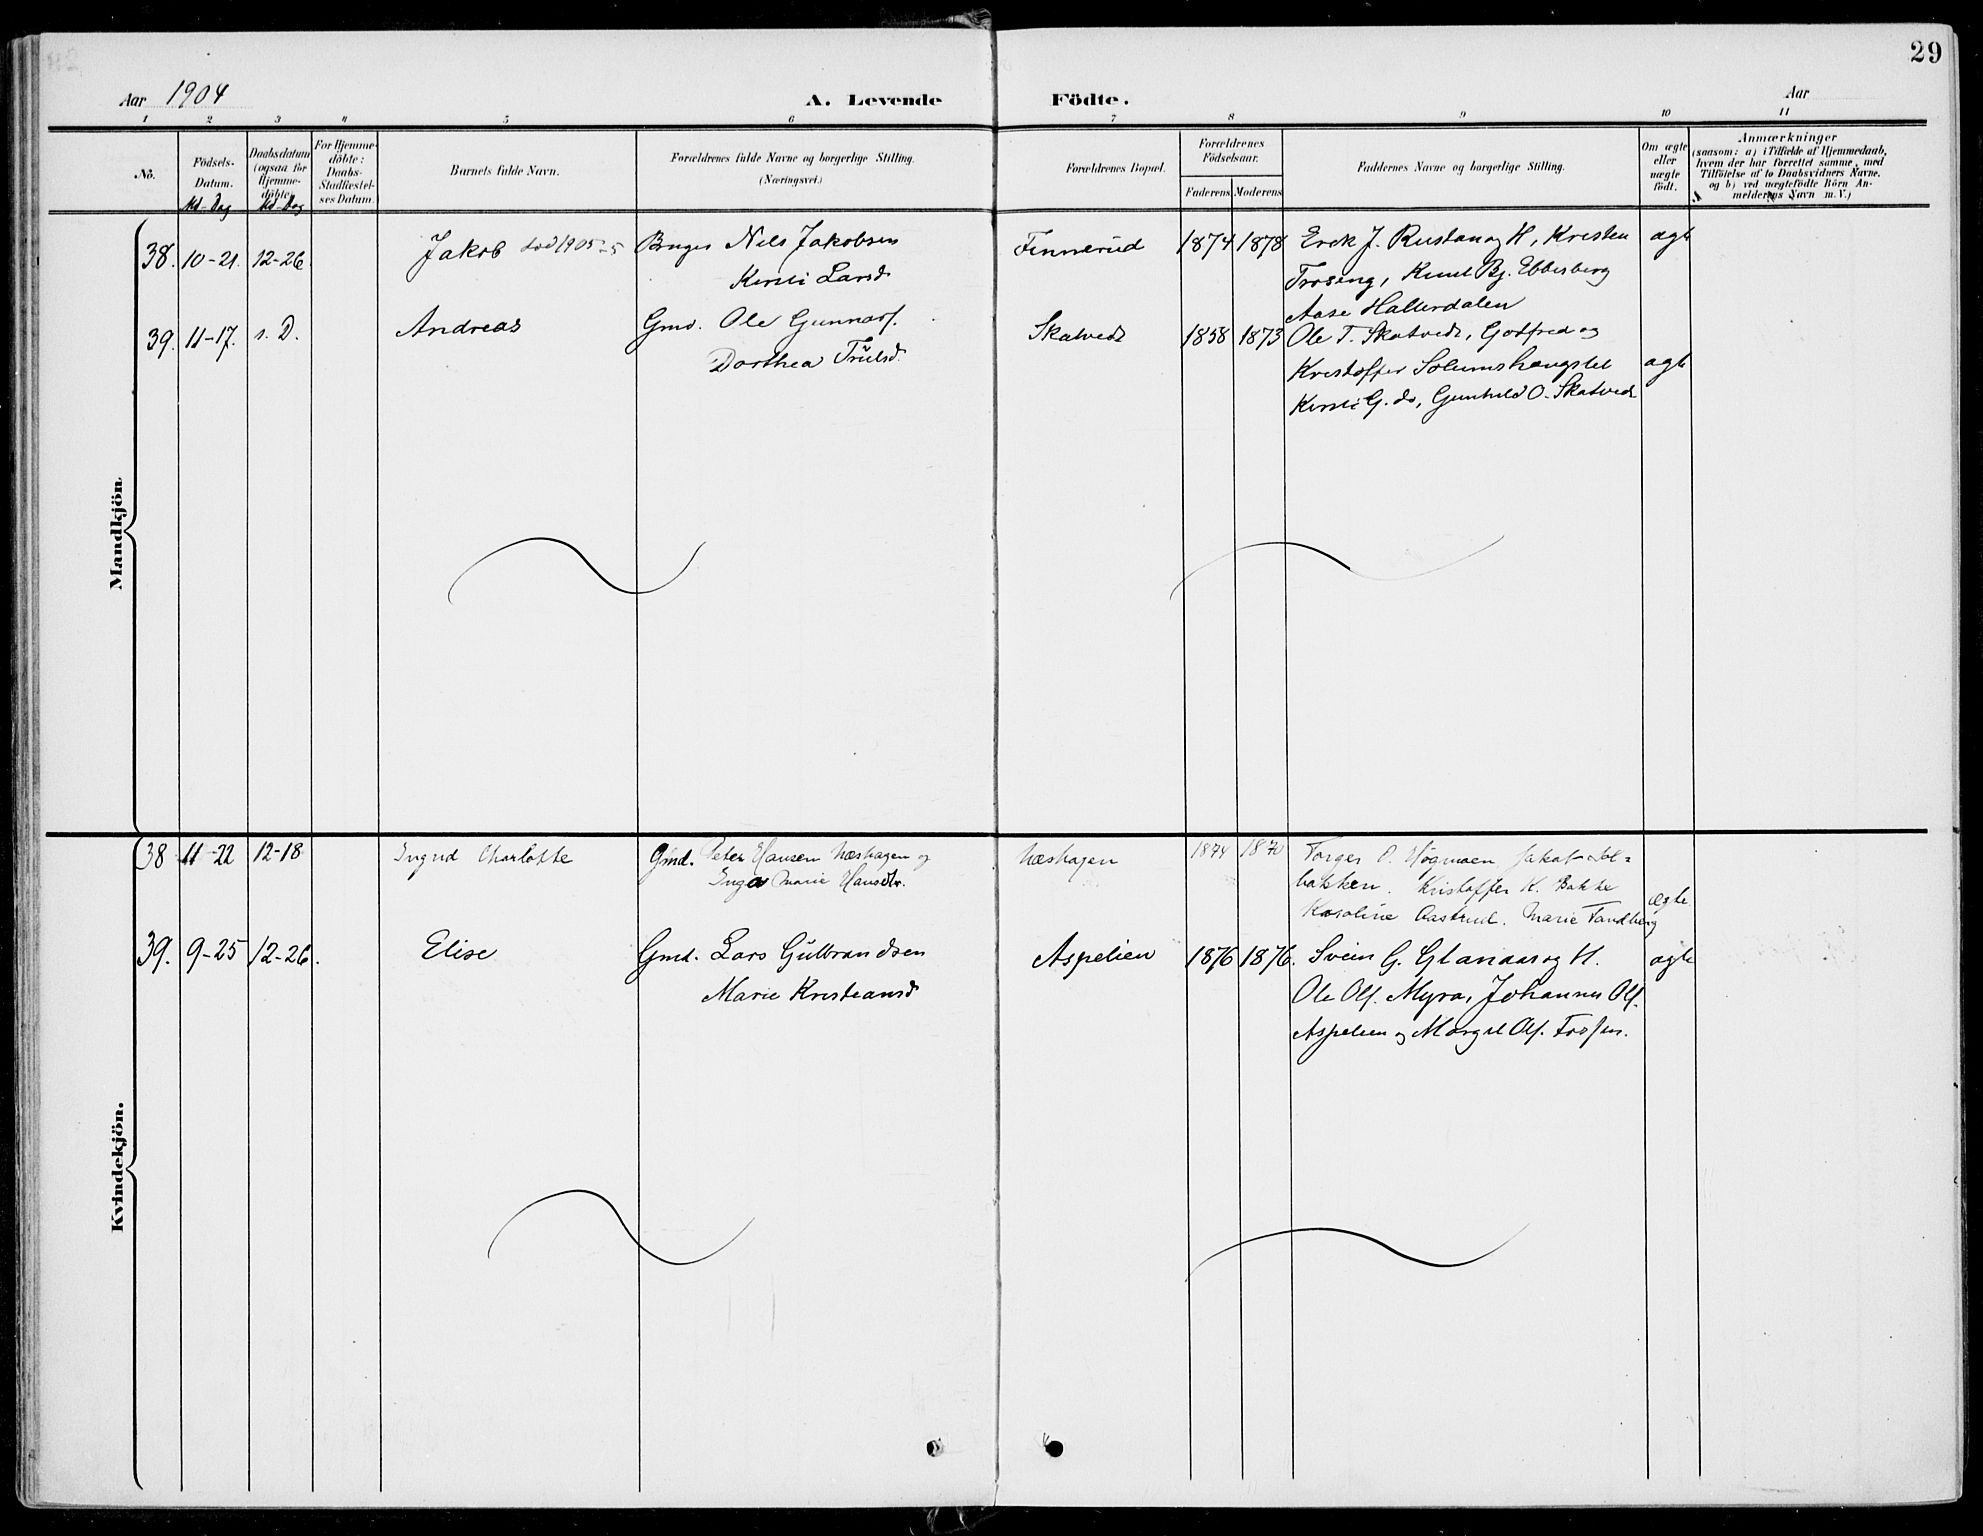 29
Aar 1904
A. Levende Födte.
Aar
1 2 3 4 5 6 7 8 9 10 11
No.
Födsels-Datum.
Md-Dag
Daabsdatum (ogsaa for Hjemme-döbte
Md-Dag
For Hjemme-döbte: Daabs-Stadfæstel-ses Datum.
Barnets fulde Navn.
Forældrenes fulde Navne og borgerlige Stilling.
(Næringsvei.)
Forældrenes Bopæl.
Forældrenes Födselsaar.
Faderens Moderens
Faddernes Navne og borgerlige Stilling.
Om ægte eller uægte födt.
Anmærkninger
(saasom: a) i Tilfælde af Hjemmedaab,
hvem der har forrettet samme, med
Tilföielse af to Daabsvidners Navne.
og b) ved uægtefödte Börn An-
melderens Navn m.V.)
Mandkjön
38. 10-21. 12-26. Jakob død 1905 Nils Jakobsen Finnerud 1874 1878 Erik J. Rustan og H, Kristen ægte
Kirsti Larsd. Knut Bj. Ebbesberg
Aase Hallerdalen
39. 11-17. s. D. Andreas Gmd. Ole Gunnars. Skatvedt 1858 1873 Ole T. Skatvedt, Gotfred og
Dorthea Trulsd. Kristoffer Solumshaugstet ægte
Kirsti G. do, Gunhild O. Skatvedt
Kvindekjön.
38 11-22 12-18 Ingrid Charlotte Gmd. Peter Hansen Næshagen og Næshagen 1874 1870 Torger O. Høgmoen Jakob Sol=
Inga Marie Hansdtr. bakken. Kristoffer K. Bakke ægte
Karoline Aastrud. Marie Tandberg
39. 9-25 12-26. Elise Gmd. Lars Gulbrandsen Aspelien 1876 1876. Svein G. Glanaas og H. ægte
Marie Kristiansd Ole Ols. Myra, Johannes Ols.
Aspelien og Margit Ols.